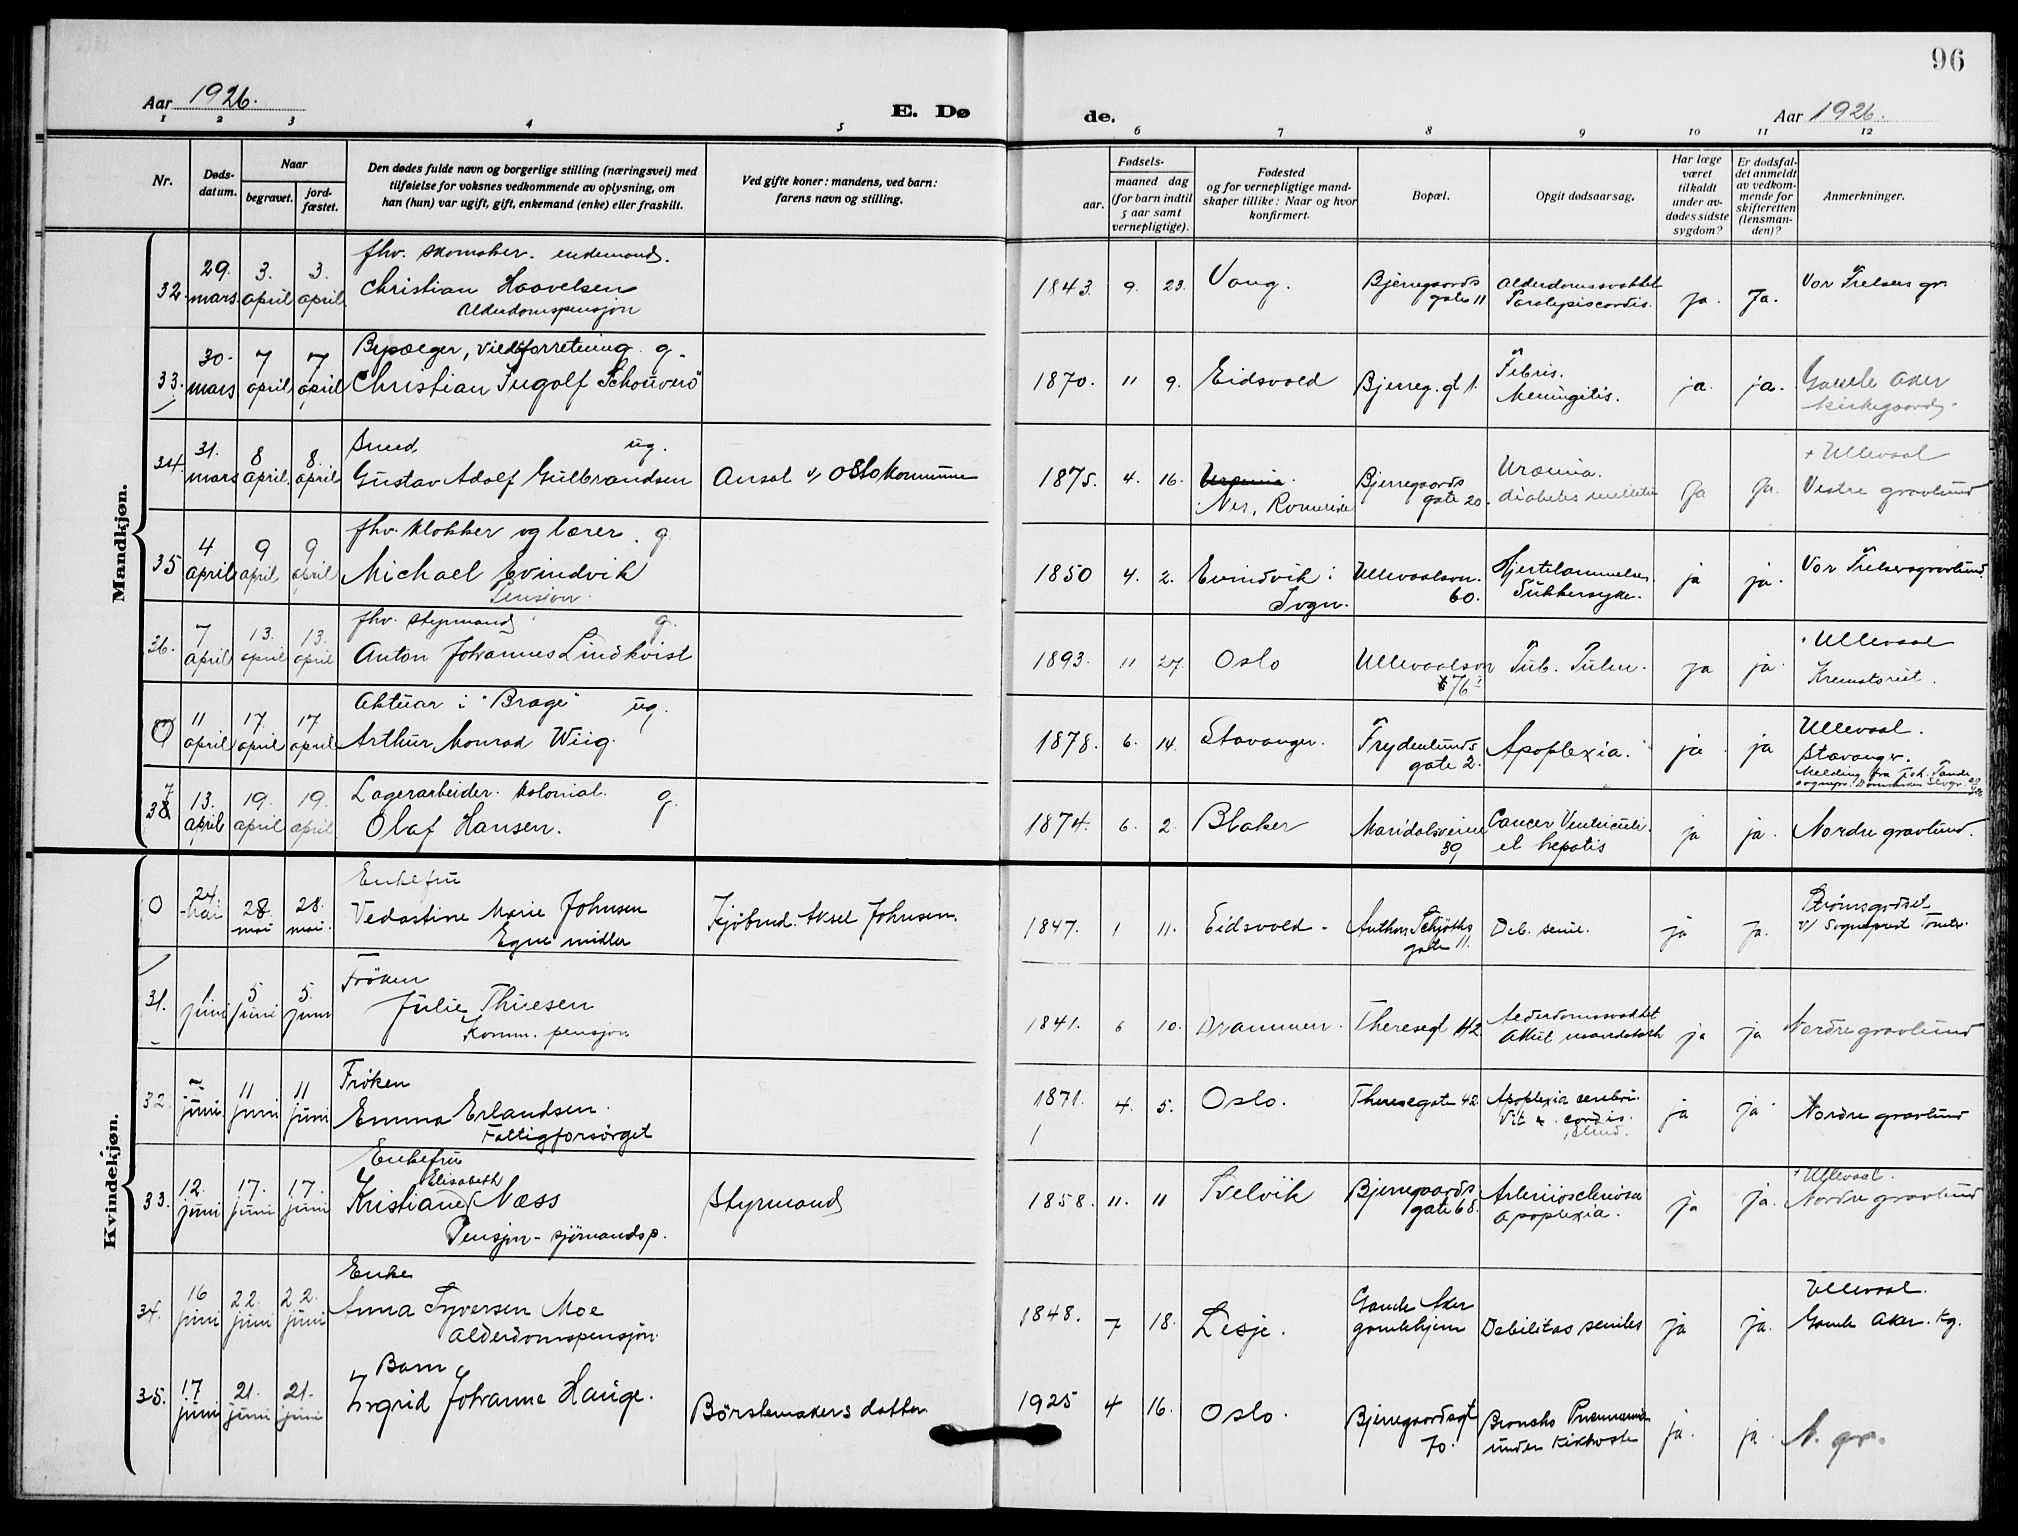 96
Aar 1926.
E. Dø
de.
Aar 1926.
1 2 3 4 5 6 7 8 9 10 11 12
Nr.
Døds-
datum.
Naar
begravet.
jord-
fæstet.
Den dødes fulde navn og borgerlige stilling (næringsvei) med
tilføielse for voksnes vedkommende av oplysning, om
han (hun) var ugift, gift, enkemand (enke) eller fraskilt.
Ved gifte koner: mandens, ved barn:
farens navn og stilling.
Fødsels-
aar.
maaned dag
(for barn indtil
5 aar samt
vernepligtige).
Fødested
og for vernepligtige mand-
skaper tillike: Naar og hvor
konfirmert.
Bopæl.
Opgit dødsaarsag.
Har læge
været
tilkaldt
under av-
dødes sidste
sygdom?
Er dødsfal-
det anmeldt
av vedkom-
mende for
skifteretten
(lensman-
den)?
Anmerkninger.
Mandkjøn.
32. 29. mars 3. april 3. april
fhv. skomaker. enkemand.
Christian Haavelsen
Alderdomspensjon
1843. 9. 23. Vang. Bjerregaards
gate 11
Alderdomssvakhet
Paralysis cordis.
ja. Ja. Vor Frelsers gr.
33. 30. mars 7 april 7 april
Bypæger, vildtforretning. g.
Christian Ingolf
1870. 11 9. Eidsvold Bjerreg. gt 1.
Febris.
Meningitis.
ja. ja. Gamle Aker
kirkegaard.
34. 31. mars 8 april. 8. april
Smed. ug.
Gustav Adolf Gulbrandsen Ansat v/ Oslo kommune
1875. 4. 16. Uræmia.
Nes, Romerike
Bjerregaards
gate 20.
Uræmia.
diabetes mellitus
Ja Ja.
+ Ullevaal
Vestre gravlund
35 4 april 9 april 9 april
fhv. klokker og lærer. g.
Michael Evindvik
Pension.
1850 4. 2. Evindvik i
Sogn.
Ullevaalsvn.
60.
Hjertelammelse.
Sukkersyke.
ja ja. Vor Frelsersgravlund.
36. 7 april 13. april 13. april
fhv. styrmand g.
Anton Johannes Lindkvist
1893. 11 27. Oslo Ullevaalsvn
76 I
Tub. Pulm.
ja ja. + Ullevaal
Krematoriet.
0 11 april 17. april 17. april
Aktuar i "Brage" ug.
Arthur Monrad Wiig.
1878. 6. 14. Stavanger. Frydenlunds
gate 2.
Apoplexia.
ja ja Ullevaal.
Stavanger.
Melding fra
37 13. april 19. april 19. april
Lagerarbeider. kolonial. g.
Olaf Hansen.
1874. 6. 2. Blaker Maridalsveien
39
Cancer Ventriculi.
et hepatis
ja ja. Nordre gravlund.
Kvindekjøn.
0 24 mai 28 mai 28. mai.
Enkefru
Vedastine Marie Johnsen
Egne midler
Kjøbmd. Aksel Johnsen.
1847. 1 11. Eidsvold. Anthon Schjøths
gate 11.
Deb. senil.
ja ja. Strømsgodset
v/ Sogneprest
31. 1 juni 5 juni 5. juni
Frøken
Julie Thuesen
Komm. pensjon
1841. 6 10. Drammen. Theresegt 42
Alderdomssvakhet
Akut
ja ja Nordre gravlund
32. juni 11 juni 11 juni
Frøken
Emma Erlandsen.
Fattigforsørget
1871. 4. 5. Oslo. Theresegate 42.
1
Apoplexia cerebri.
Vit. cordis.
Blind.
ja ja Nordre gravlund
33. 12. juni 17. juni 17. juni
Enkefru
Elisabeth
Kristiane Næss
Pensjon - sjømandsp.
Styrmand
1858. 11. 11 Svelvik Bjerregaards
gate 68.
Arteriosclerosa
Apoplexia.
ja ja. + Ullevaal.
Nordre gravlund
34. 16 juni 22. juni 22. juni
Enke
Anna Syversen Moe
Alderdomspensjon
1848. 7 18. Lesje. Gamle Aker
gamlehjem
Debilitas seniles
ja ja. Ullevaal.
Gamle Aker. kg.
35. 17 juni 21. juni 21. juni
Barn
Ingrid Johanne Hauge.
Børstemakers datter
1925 4 16. Oslo. Bjerregaardsgt
70.
Broncho Pneumonia
under kikhoste
ja. ja. N. gr.